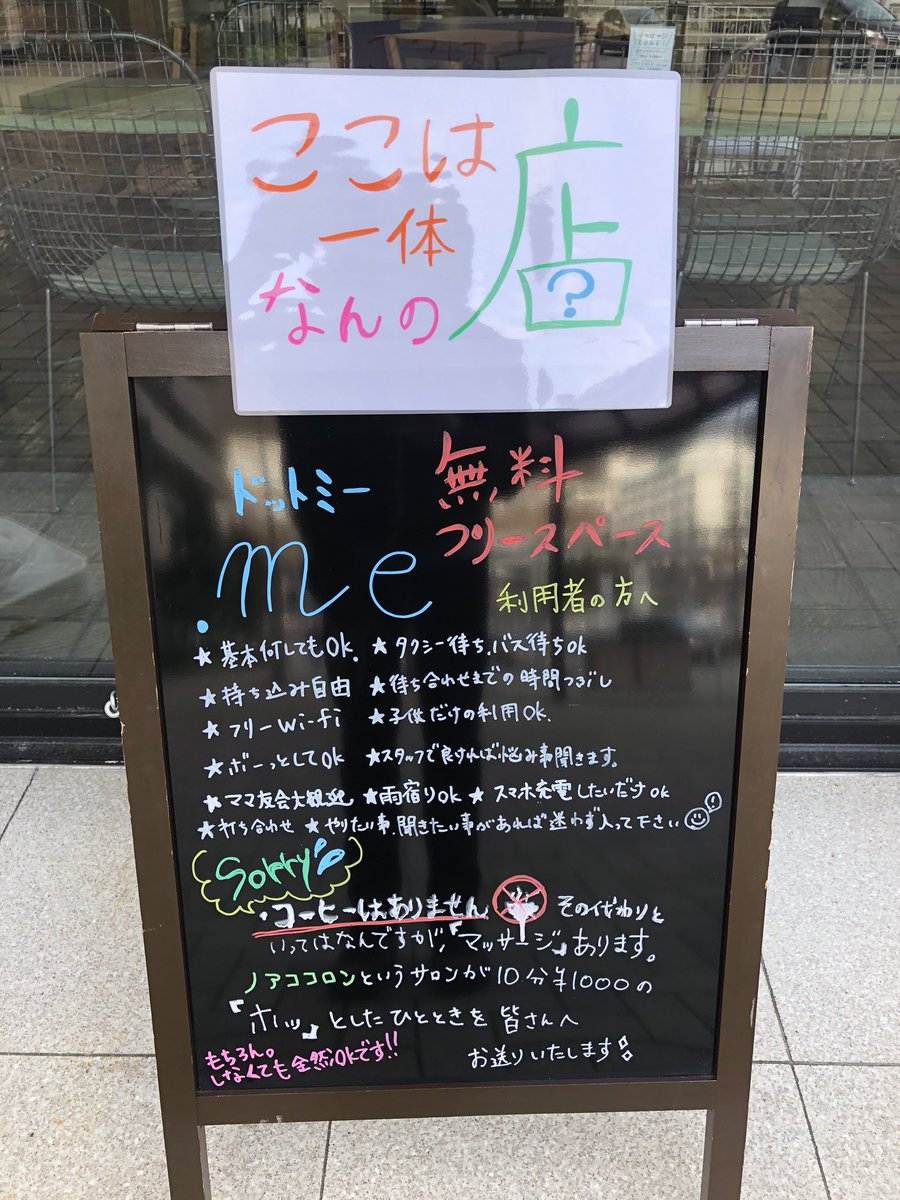 ここは
一体
なんの
店
?
ドットミー
.me
無料
フリースペース
利用者の方へ
★基本何してもOK. ★タクシー待ち、バス待ちOK
★持ち込み自由 ★待ち合わせまでの時間つぶし
★フリーWi-fi ★子供だけの利用OK.
★ボーっとしてOK ★スタッフで良ければ悩み事聞きます。
★ママ友会大歓迎 ★雨宿りOK ★スマホ充電したいだけOK
★打ち合わせ ★やりたい事、聞きたい事があれば迷わず入って下さい
Sorry
・コーヒーはありません その代わりと
いってはなんですが、「マッサージ」あります。
ノアココロンというサロンが10分¥1000の
『ホッ』としたひとときを皆さんへ
お送りいたします
もちろん。
しなくても全然OKです!!